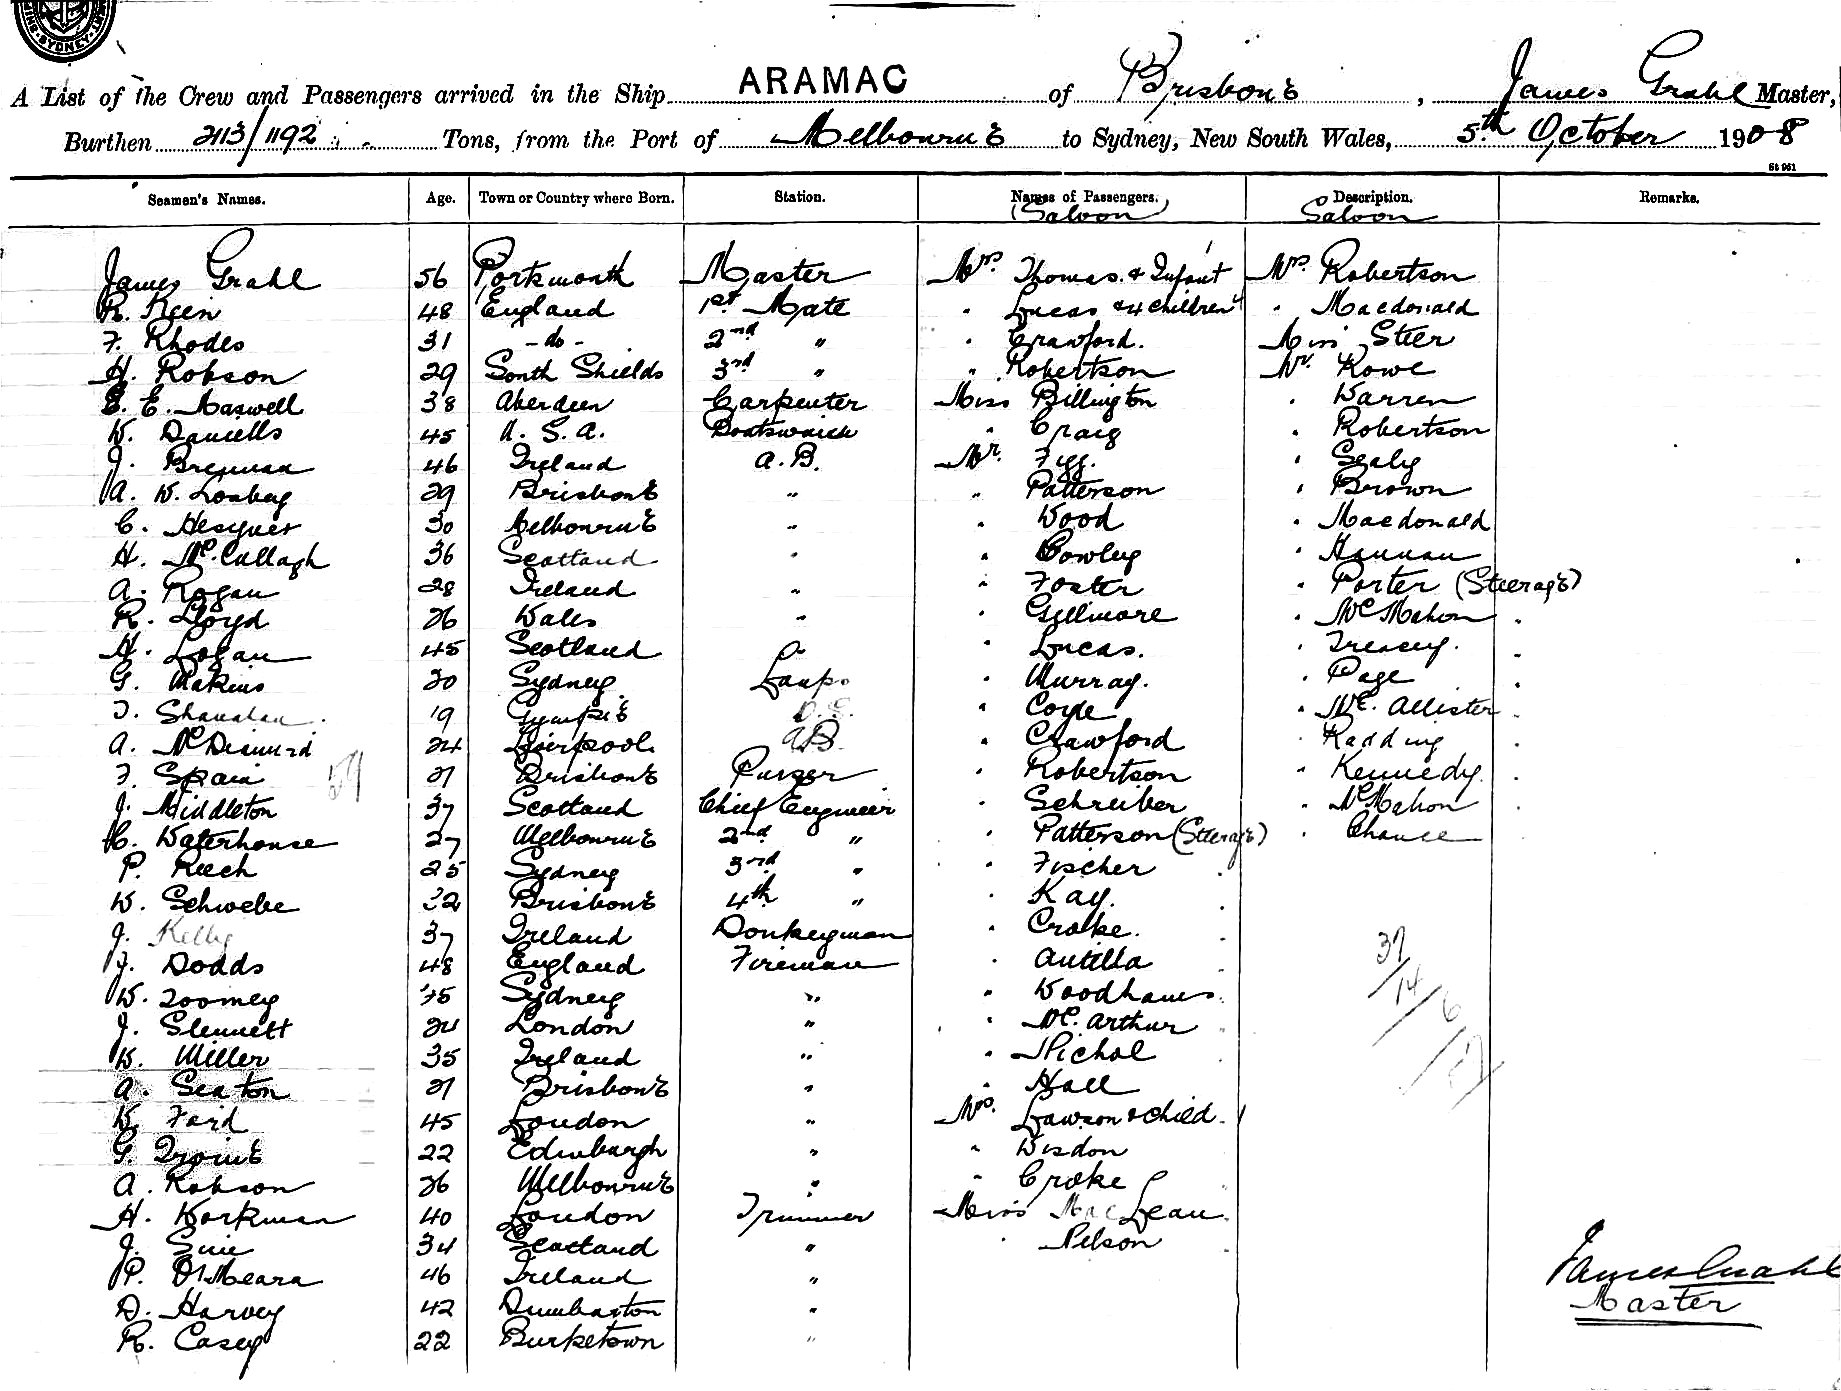 SYDNEY
A List of the Crew and Passengers arrived in the Ship ARAMAC of Brisbane, James Grahl Master,
Burthen 2113/1192 Tons, from the Port of Melbourne to Sydney, New South Wales, 5th October 1908
St 961
Seamen's Names. Age. Town or Country where Born. Station. Names of Passengers. Description. Remarks.
(Saloon) Saloon
James Grahl 56 Portsmouth Master Mrs Thomas & Infant Mrs Robertson
R. Keen 48 England 1st Mate " Lucas & 4 children " Macdonald
F. Rhodes 31 - do - 2nd " " Crawford. Miss Steer
H. Robson 29 South Shields 3rd " " Robertson Mr. Rowe
E. E. Maxwell 38 Aberdeen Carpenter Miss Billington " Warren
W. Daniells 45 U. S. A. Boatswain " Craig " Robertson
J. Brennan 46 Ireland A.B. Mr. Figg. " Sealy
A. W. 29 Brisbane " " Patterson " Brown
C. 30 Melbourne " " Wood " Macdonald
H. McCullagh 36 Scotland " " Cowley " Hannan
A. Rogan 28 Ireland " " Foster " Porter (Steerage)
R. Lloyd 26 Wales " " Gillmore " McMahon "
H. Logan 45 Scotland " Lucas. " Treacy. "
G. Makins 20 Sydney Lamps " Murray. " Page "
T. Shanahan 19 Gympie O.S. " Coyle " McAllister "
A. 24 Liverpool AB. " Crawford " Radding "
F. Spain 21 Brisbane Purser " Robertson " Kennedy. "
J. Middleton 37 Scotland Chief Engineer " Schreiber " McMahon "
C. Waterhouse 27 Melbourne 2nd " " Patterson (Steerage) " Chance
P. Keech 25 Sydney 3rd " " Fischer "
W. Schwebe 32 Brisbane 4th " " Kay. "
J. Kelly 37 Ireland Donkeyman " Croke. "
J. Dodds 48 England Fireman " Antilla "
W. Toomey 35 Sydney " " Woodhams "
J. Slennett 24 London " " McArthur "
W. Miller 35 Ireland " " Nichol "
A. Seaton 21 Brisbane " " Hall
W. Ford 45 London " Mrs. Lawson & child.
G. Irvine 22 Edinburgh " " Wisdon
A. Robson 26 Melbourne " " Croke
H. Workman 40 London Trimmer Miss MacLean
J. Sim 34 Scotland " " Nelson
P. O'Meara 46 Ireland "
D. Harvey 42 Dumbarton "
R. Casey 22 Burketown "
James Grahl
Master